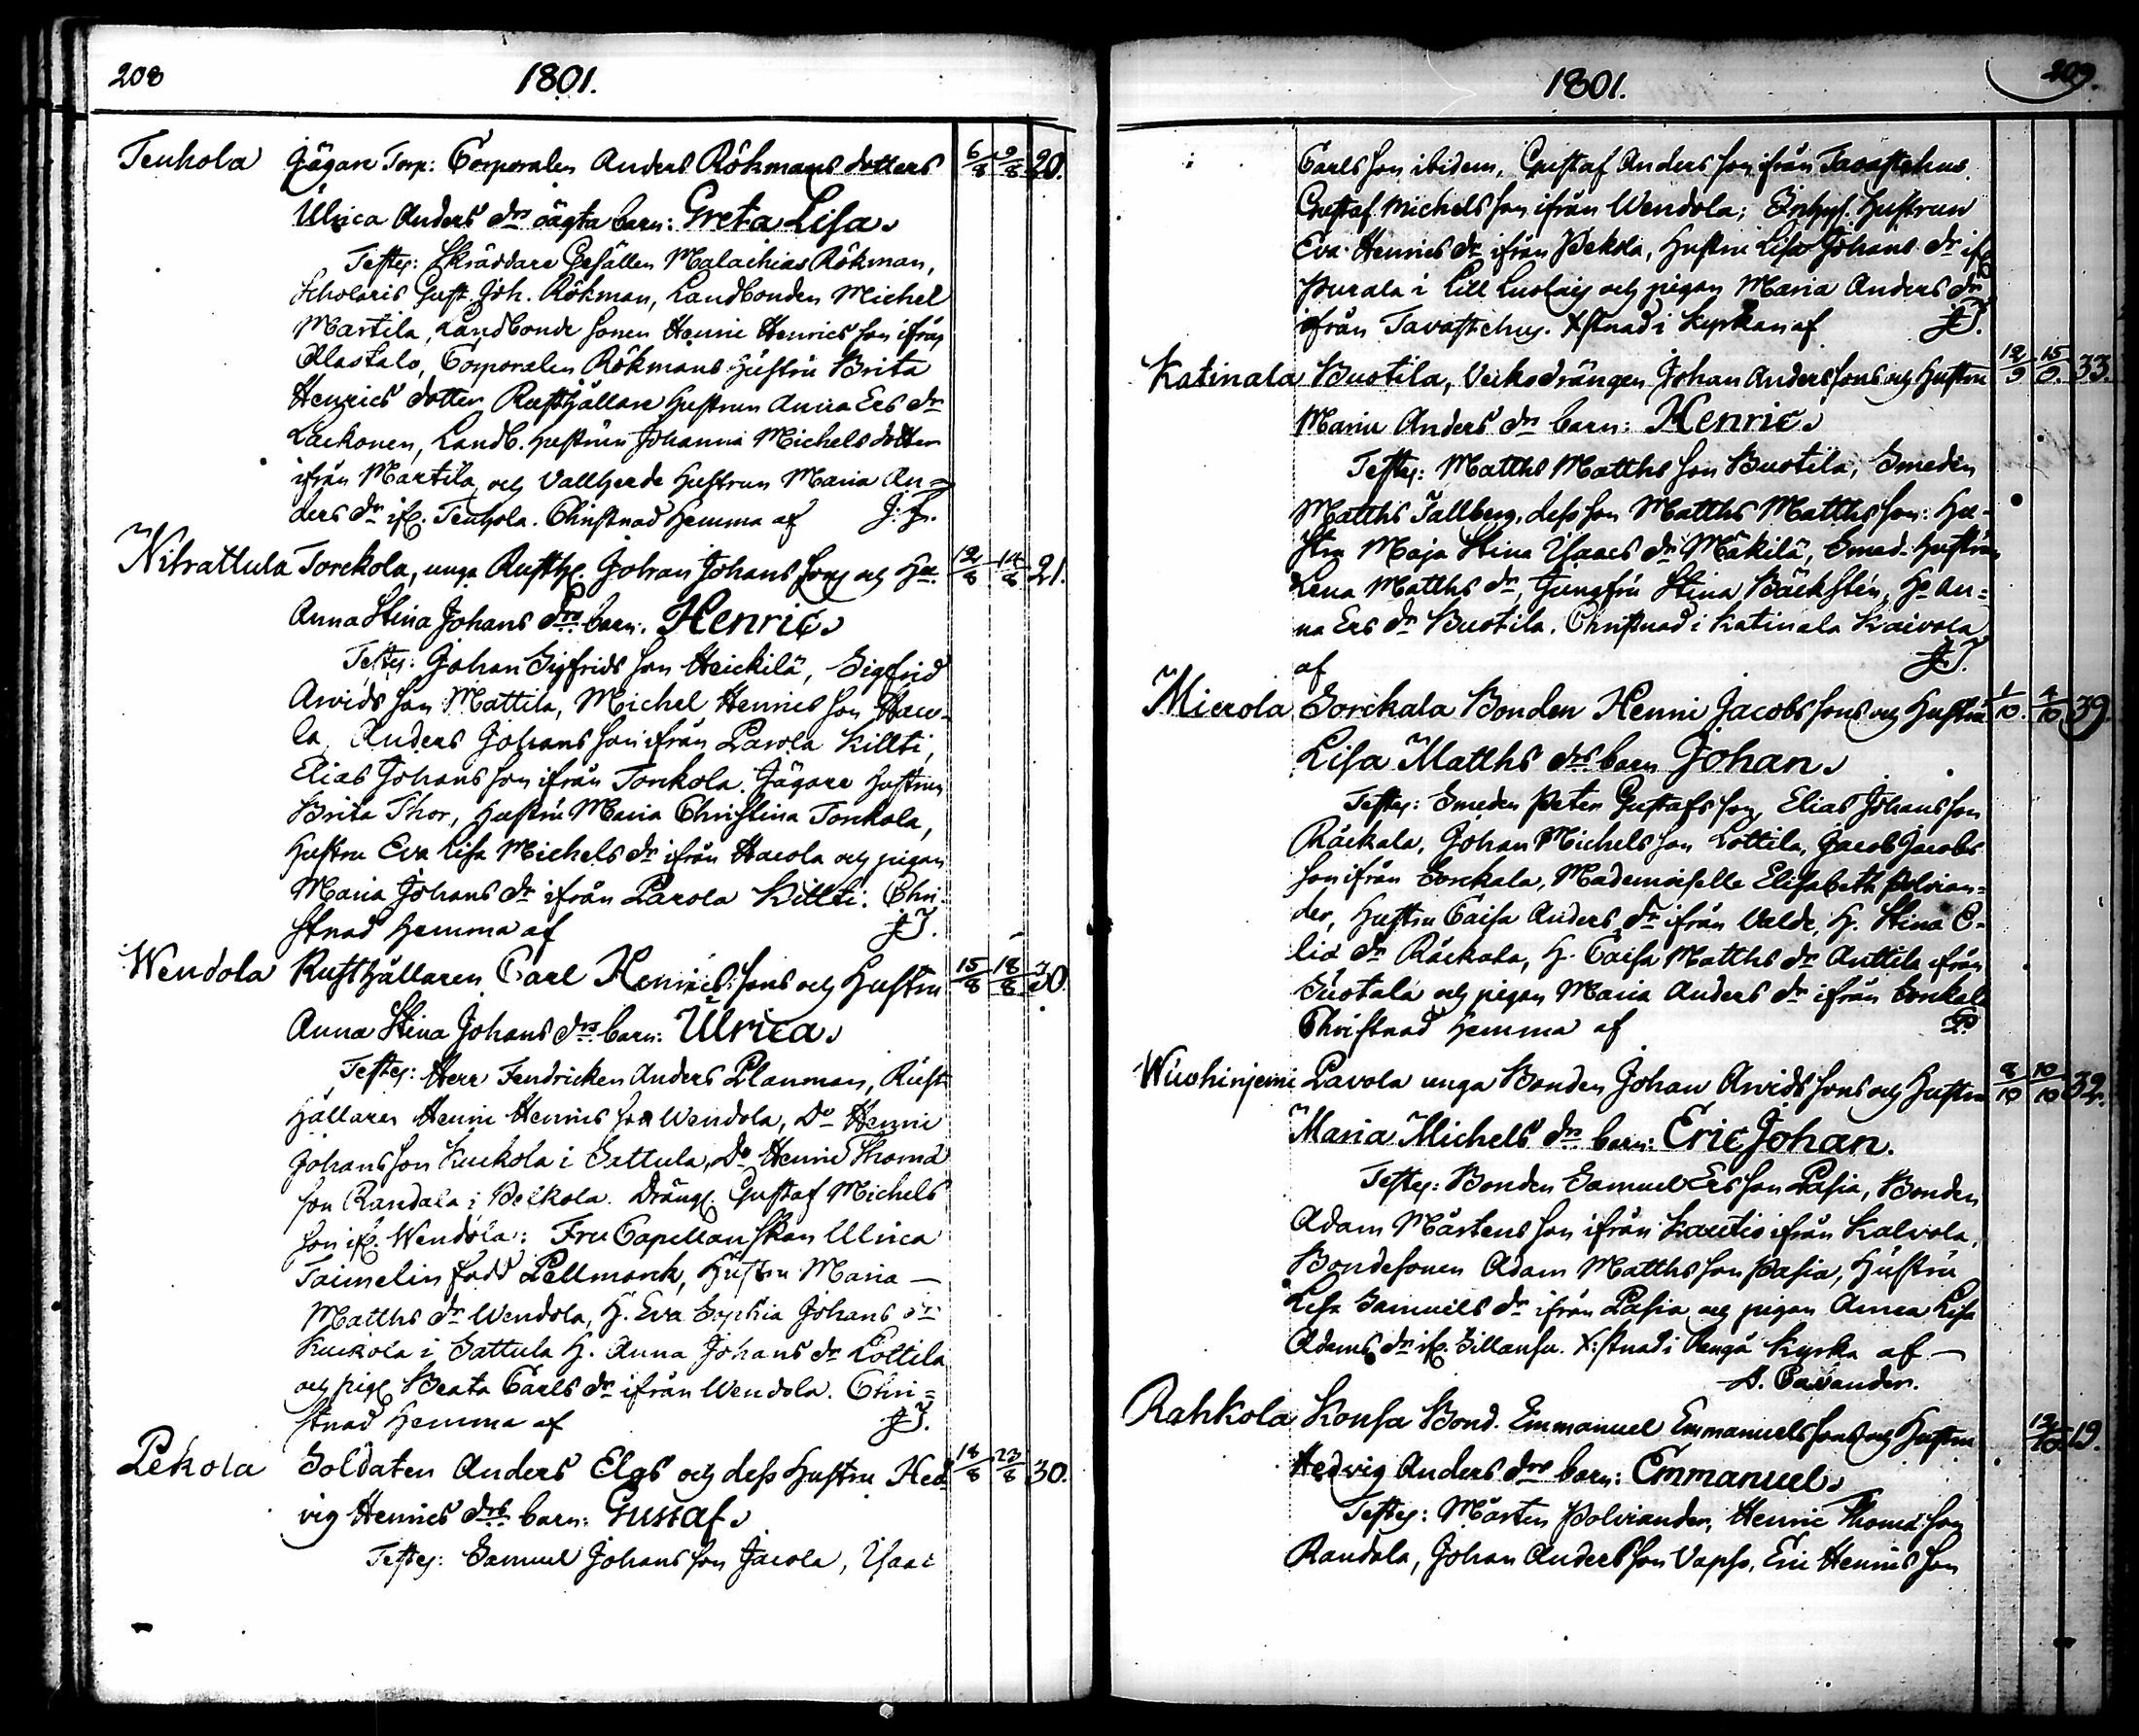 208 1801.
Teuhola Jägare Torp: Corporalen Anders Rökmans dotters 6/8 9/8 20.
Ulrica Anders drs oägta barn: Greta Lisa.
Testes: Skräddare Gesällen Malachias Rökman,
Scholaris Gust. Joh. Rökman, Landbonden Michel
Martila, Landbonde sonen Henric Henricsson ifrån
Alastalo, Corporalen Rökmans Hustru Brita
Henrics dotter, Rusthållare Hustrun Anna Ers dr
Lackonen, Landb. hustrun Johanna Michels dotter
ifrån Martila, och Vallherde Hustrun Maria An=
ders dr ifr. Teuhola. Christnad Hemma af J: J.
Nihattula Torckola, unga Rusth. Johan Johans Sons och Hu. 12/8 14/8 21.
Anna Stina Johans drs barn: Henric.
Testes: Johan Sigfrids son Heickilä, Sigfrid
Arvids son Mattila, Michel Henrics son
la, Anders Johans son ifrån Parola Killti,
Elias Johans son ifrån Torckola. Jägare hustrun
Brita Thor, Hustru Maria Christina Torckola,
Hustru Eva Lisa Michels dr ifrån Hacola och pigan
Maria Johans dr ifrån Parola Killti. Chri-
stnad Hemma af JJ.
Wendola Rusthållaren Carl Henrics sons och Hustru 15/8 18/8 30.
Anna Stina Johans drs barn: Ulrica.
Testes: Herr Fendricken Anders Planman, Rust
hållaren Henric Henrics son Wendola, Do Henric
Johans son Kuckola i Sattula, Do Henric Thomæ
son Randala i Pelkola. Dräng. Gustaf Michels
son ifr. Wendola: Fru Capellanskan Ulrica
Taimelin född Pellmarck, Hustru Maria —
Matths dr Wendola, H. Eva Sophia Johans dr
Kuckola i Sattula H. Anna Johans dr Lottila
och pig. Beata Carls dr ifrån Wendola. Chri=
stnad Hemma af JJ.
Pekola Soldaten Anders Elgs och dess Hustru Hed 18/8 23/8 30.
vig Henrics drs barn: Gustaf.
Testes: Samuel Johans son Jacola, Isaac
1801. 209.
Carlsson ibidem, Gustaf Anders son ifrån Tavastehus,
Gustaf Michelsson ifrån Wendola; Hustrun
Eva Henrics dr ifrån Pekola, Hustru Lisa Johans dr ifr
Purala i Lill Luolais och pigan Maria Anders dr
ifrån Tavastehus. Xstnad i Kyrkan af JJ.
Katinala Buotila, Veckodrängen Johan Anderssons och Hustru 12/9 15/9 33.
Maria Anders drs barn: Henric.
Testes: Matths Matths son Buotila, Smeden
Matths Tallberg, dess son Matths Matths son: Hu-
stru Maja Stina Isaacs dr Mäkilä, Smed-hustrun
Lena Matths dr, Jungfru Stina Bäcksten, H. An=
na Ers dr Buotila. Christnad i Katinala Kaivola
af JJ.
Mierola Sorckala Bonden Henric Jacobssons och Hustru 1/10 4/10 39.
Lisa Matths drs barn Johan.
Testes: Smeden Peter Gustafsson, Elias Johansson
Räckala, Johan Michelsson Lottila, Jacob Jacobs
son ifrån Sorckala, Mademoiselle Elisabeth Polvian=
der, Hustru Caisa Anders dr ifrån Valde, H. Stina E-
lias dr Räckala, H. Caisa Matths dr Anttila ifrån
Suotala och pigan Maria Anders dr ifrån Sorckala
Christnad Hemma af
Wuohinjemi Pavola unga Bonden Johan Arvidssons och Hustru 8/10 10/10 32.
Maria Michels drs barn: Eric Johan.
Testes: Bonden Samuel Ersson Pasia, Bonden
Adam Mårtens son ifrån Kautio ifrån Kalvola,
Bondesonen Adam Matthsson Pasia, Hustru
Lisa Samuels dr ifrån Pasia och pigan Anna Lisa
Adams dr ifr. Sillansu. X:stnad i Rengå Kyrka af —
A. Cavander.
Rahkola Konsa Bond. Emmanuel Emmanuelssons och Hustru 12/10 19.
Hedvig Anders drs barn: Emmanuel.
Testes: Mårten Polviander, Henric Thomæ son
Randala, Johan Andersson Vapso, Eric Henrics son